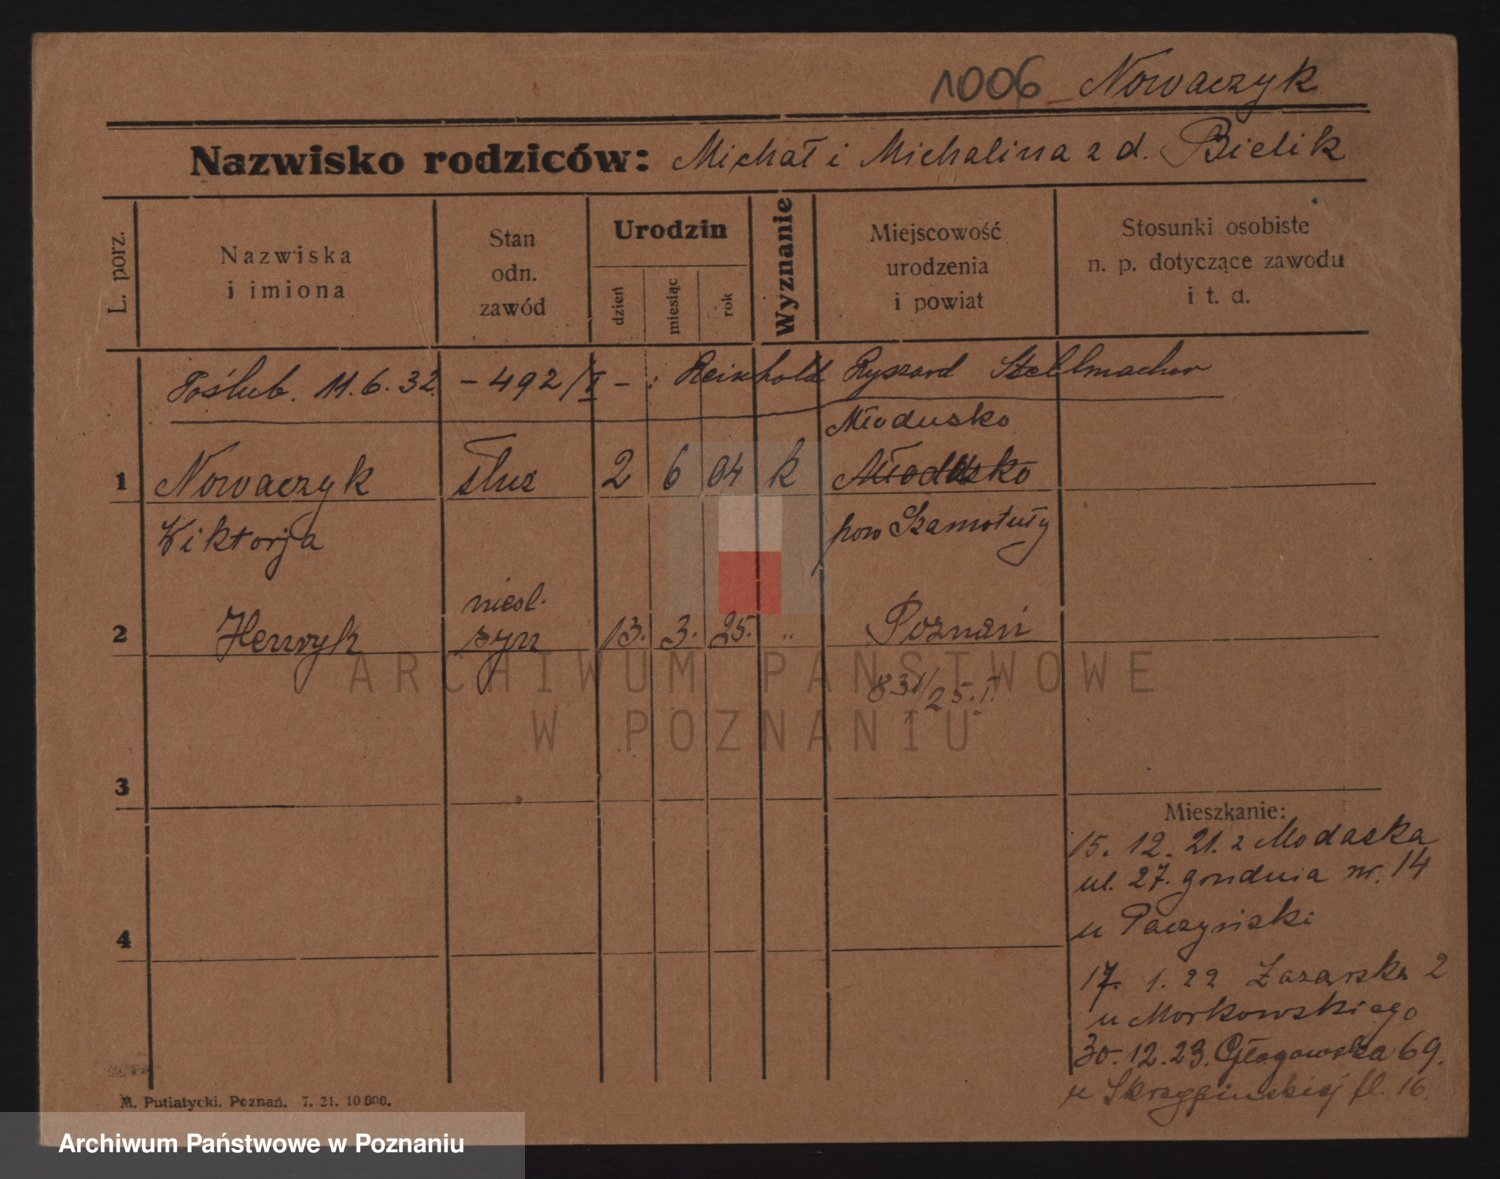 1006 Nowaczyk
Nazwisko rodziców: Michał i Michalina z d. Bielik
L. porz.
Nazwiska
i imiona
Stan
odn.
zawód
Urodzin
dzień
miesiąc
rok
Wyznanie
Miejscowość
urodzenia
i powiat
Stosunki osobiste
n. p. dotyczące zawodu
i t. d.
Poślub. 11.6.32. - 492/I - : Reinhold Ryszard Stellmacher
Miodusko
1 Nowaczyk służ 2 6 04 k Miodusko
Wiktorja pow Szamotuły
niesl.
2 Henryk syn 13. 3. 25. " Poznań
831/25.I.
3
Mieszkanie:
15. 12. 21. z Modaska
ul. 27. grudnia nr. 14
u Paczyński
4
17. 1. 22 Łazarska 2
u Morkowskiego
30. 12. 23. Głogowska 69.
u fl. 16
M. Putiatycki. Poznań. 7. 21. 10 000.
ARCHIWUM PAŃSTWOWE
W POZNANIU
Archiwum Państwowe w Poznaniu